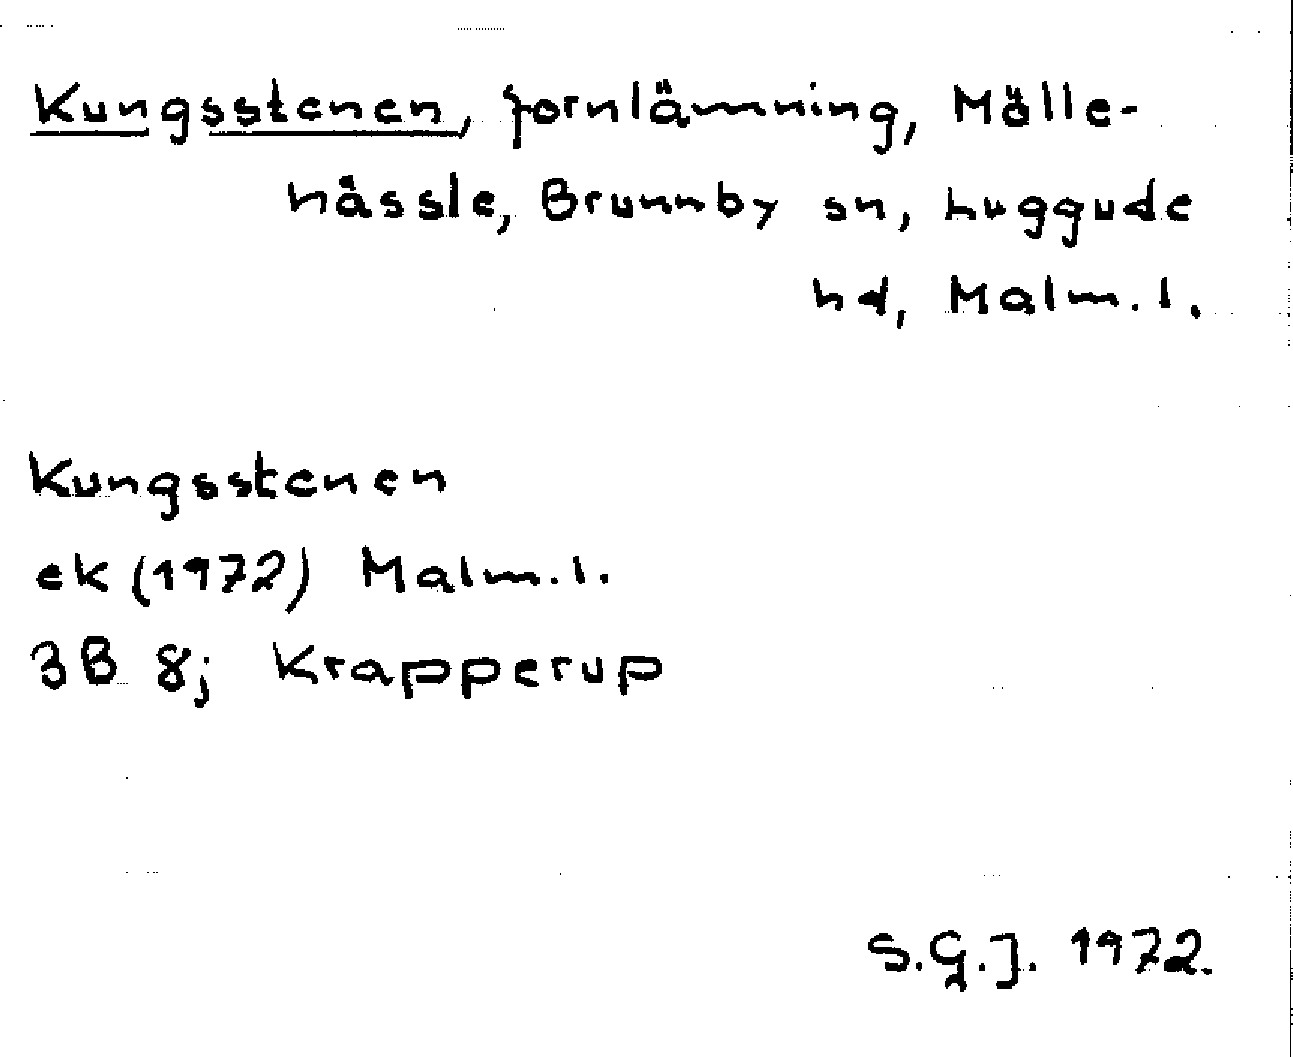 Kungsstenen, fornlämning, Mölle-
hässle, Brunnby sn, Luggude
hd, Malm. l.
Kungsstenen
ek (1972) Malm. l.
3B 8j Krapperup
S.G.J. 1972.